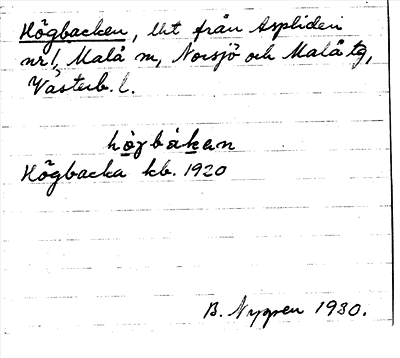 Högbacken, lht från Aspliden
nr 1, Malå sn, Norsjö och Malå tg,
Västerb. l.
hògbákan
Högbacka kb. 1920
B. Nygren 1930.